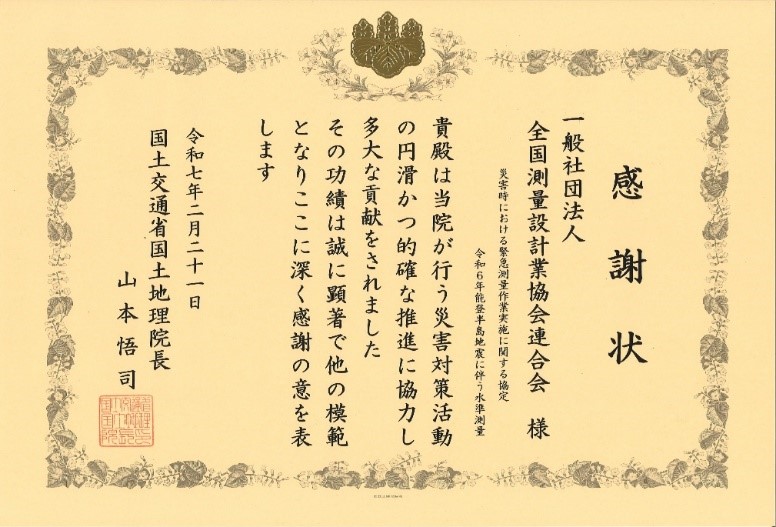 感謝状
一般社団法人
全国測量設計業協会連合会 様
災害時における緊急測量作業実施に関する協定
令和6年能登半島地震に伴う水準測量
貴殿は当院が行う災害対策活動
の円滑かつ的確な推進に協力し
多大な貢献をされました
その功績は誠に顕著で他の模範
となりここに深く感謝の意を表
します
令和七年二月二十一日
国土交通省国土地理院長
山本悟司